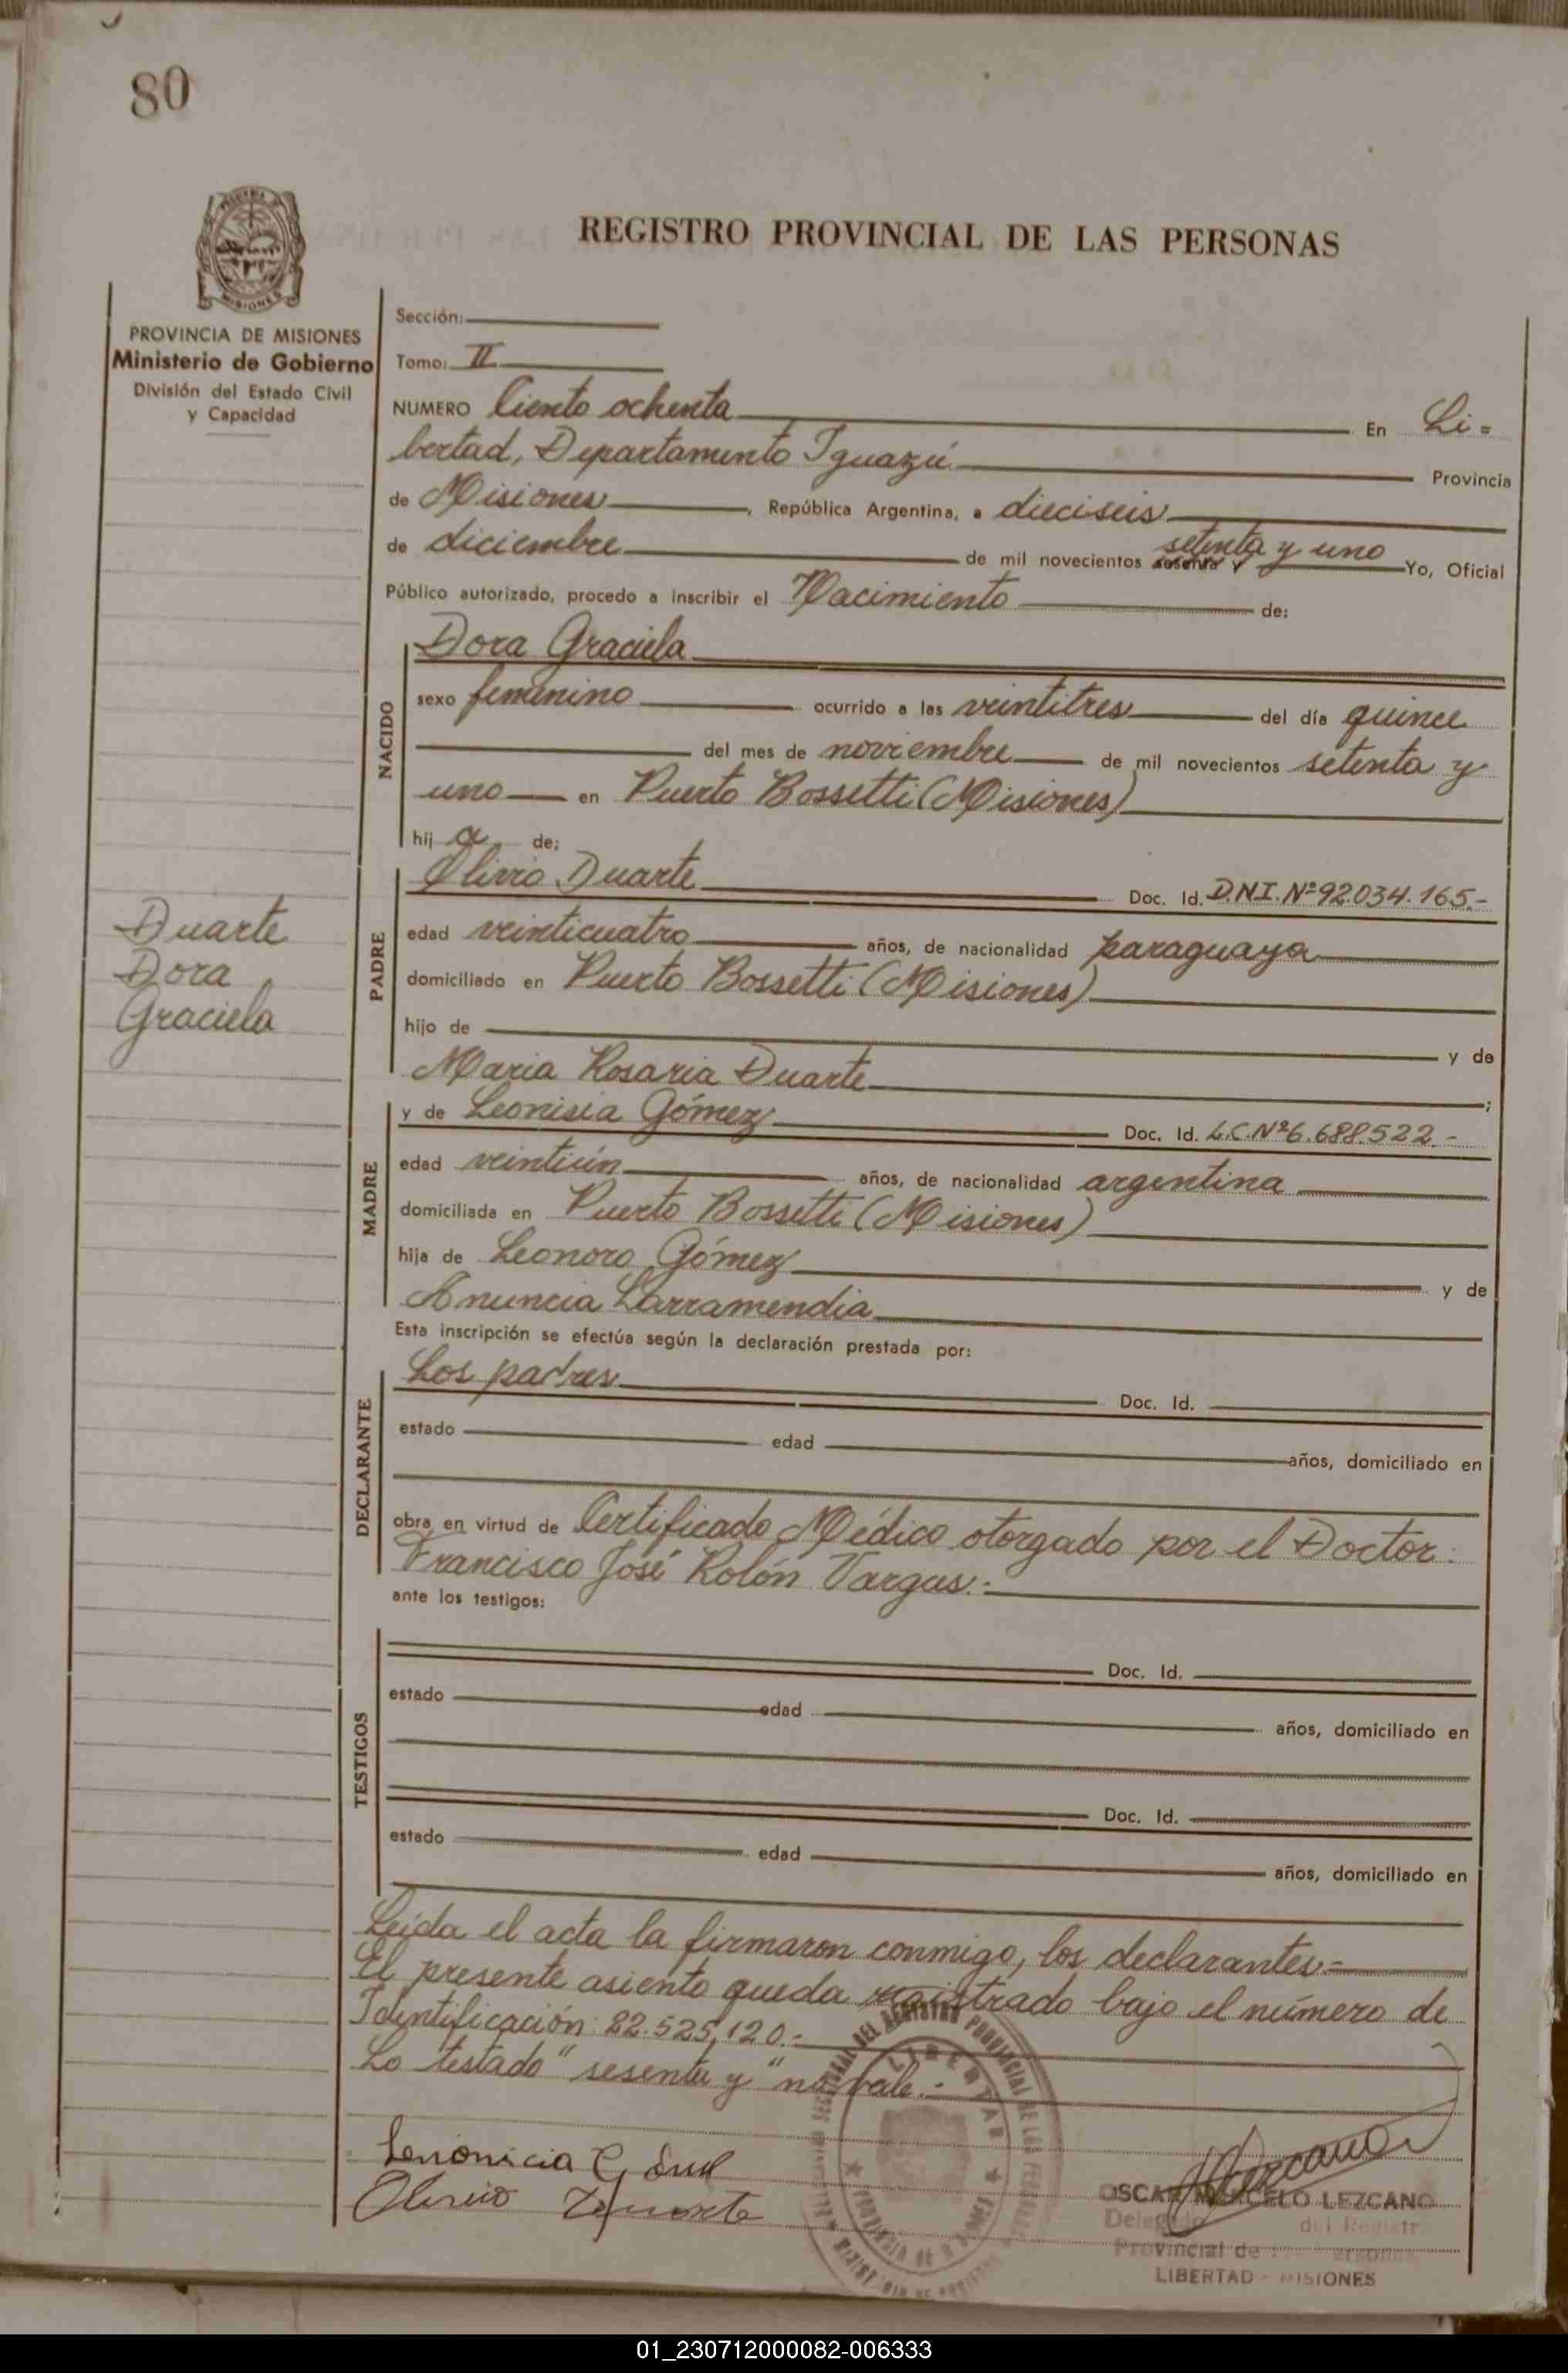 80
REGISTRO PROVINCIAL DE LAS PERSONAS
MISIONES
PROVINCIA DE MISIONES
Ministerio de Gobierno
División del Estado Civil
y Capacidad
Sección:
Tomo: II
NUMERO Ciento ochenta En Li=
bertad, Departamento Iguazú Provincia
de Misiones, República Argentina, a dieciseis
de diciembre de mil novecientos sesenta y setenta y uno Yo, Oficial
Público autorizado, procedo a inscribir el Nacimiento de:
NACIDO
Dora Graciela
sexo femenino ocurrido a las veintitres del día quince
del mes de noviembre de mil novecientos setenta y
uno en Puerto Bossetti (Misiones)
hij a de:
Duarte
Dora
Graciela
PADRE
Olivio Duarte Doc. Id. D.N.I. Nº 92.034.165.-
edad veinticuatro años, de nacionalidad paraguaya
domiciliado en Puerto Bossetti (Misiones)
hijo de y de
Maria Rosaria Duarte;
MADRE
y de Leonisia Gómez Doc. Id. L.C. Nº 6.688.522.-
edad veintiún años, de nacionalidad argentina
domiciliada en Puerto Bossetti (Misiones)
hija de Leonoro Gómez y de
Anuncia Larramendia
Esta inscripción se efectúa según la declaración prestada por:
DECLARANTE
Los padres Doc. Id.
estado edad años, domiciliado en
obra en virtud de Certificado Médico otorgado por el Doctor:
Francisco José Rolón Vargas.-
ante los testigos:
TESTIGOS
Doc. Id.
estado edad años, domiciliado en
Doc. Id.
estado edad años, domiciliado en
Leída el acta la firmaron conmigo, los declarantes.-
El presente asiento queda registrado bajo el número de
Identificación: 22.525.120.-
Lo testado "sesenta y" no vale.-
Olivio Duarte
OSCAR MARCELO LEZCANO
Delegado del Registro
Provincial de
LIBERTAD - MISIONES
01_230712000082-006333